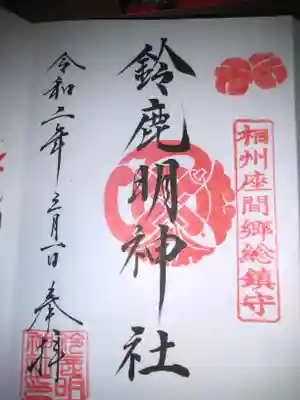 相州座間郷総鎮守
鈴鹿明神社
令和二年三月一日奉拝
鈴鹿明神社之印